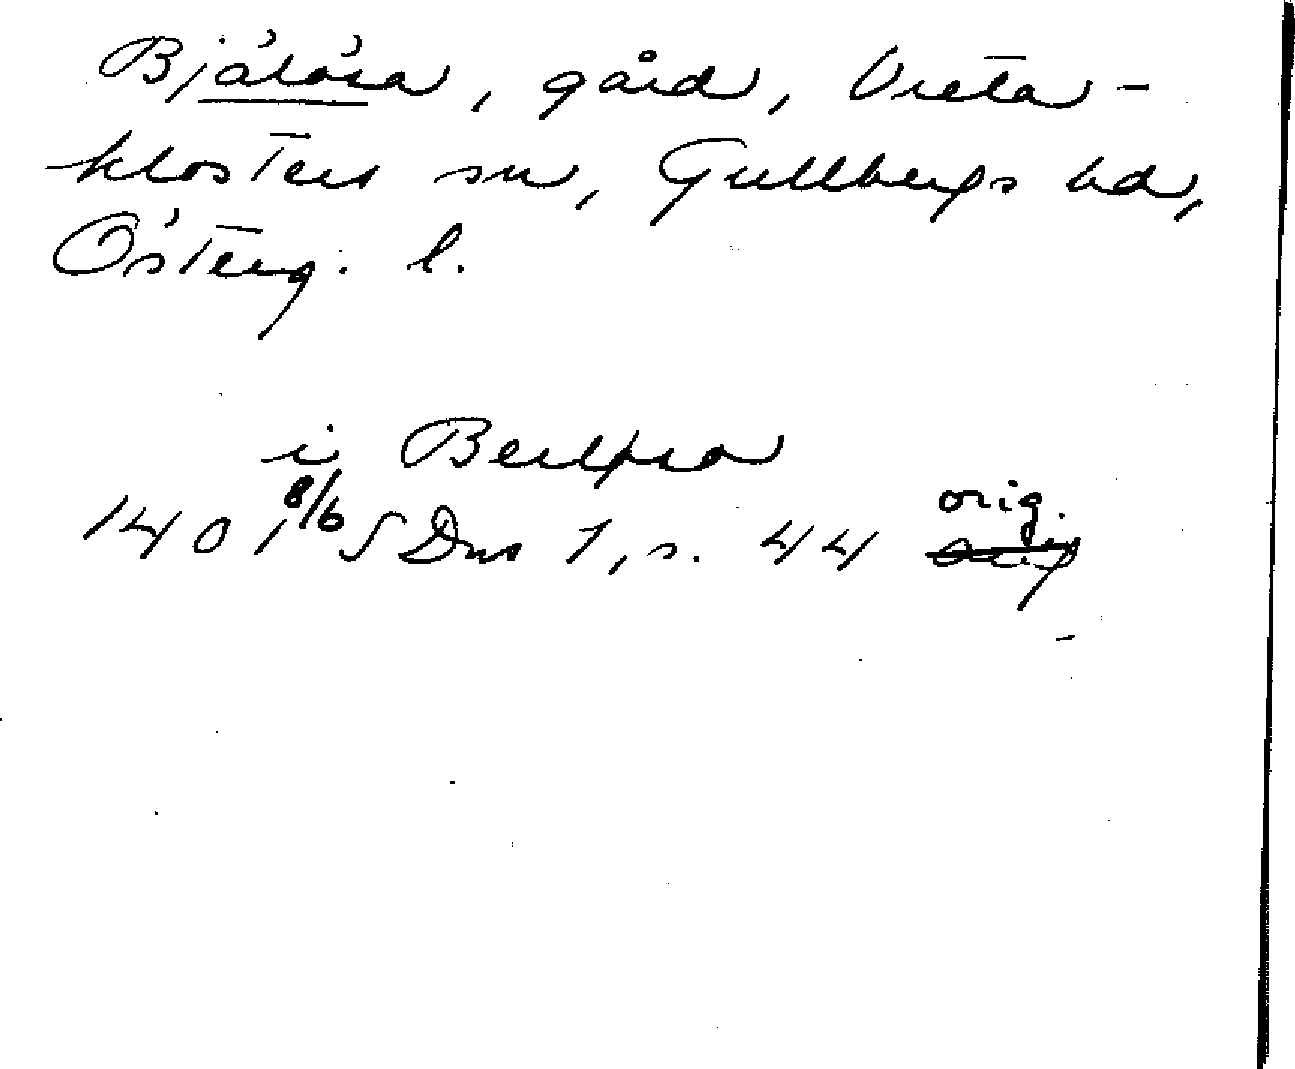 Bjälösa, gård, Vreta-
klosters sn, Gullbergs hd,
Österg. l.
i Berløsa
1401 8/6 SDns 1, s. 44 orig.